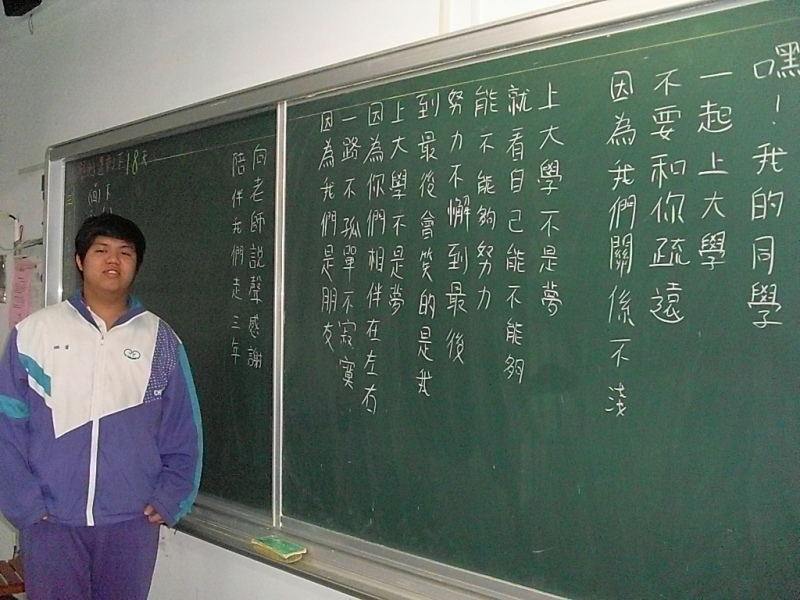 嘿！我的同學
一起上大學
不要和你疏遠
因為我們關係不淺
上大學不是夢
就看自己能不能夠
能不能夠努力
努力不懈到最後
到最後會笑的是我
上大學不是夢
因為你們相伴在左右
一路不孤單不寂寞
因為我們是朋友
向老師說聲感謝
陪伴我們走三年
18天